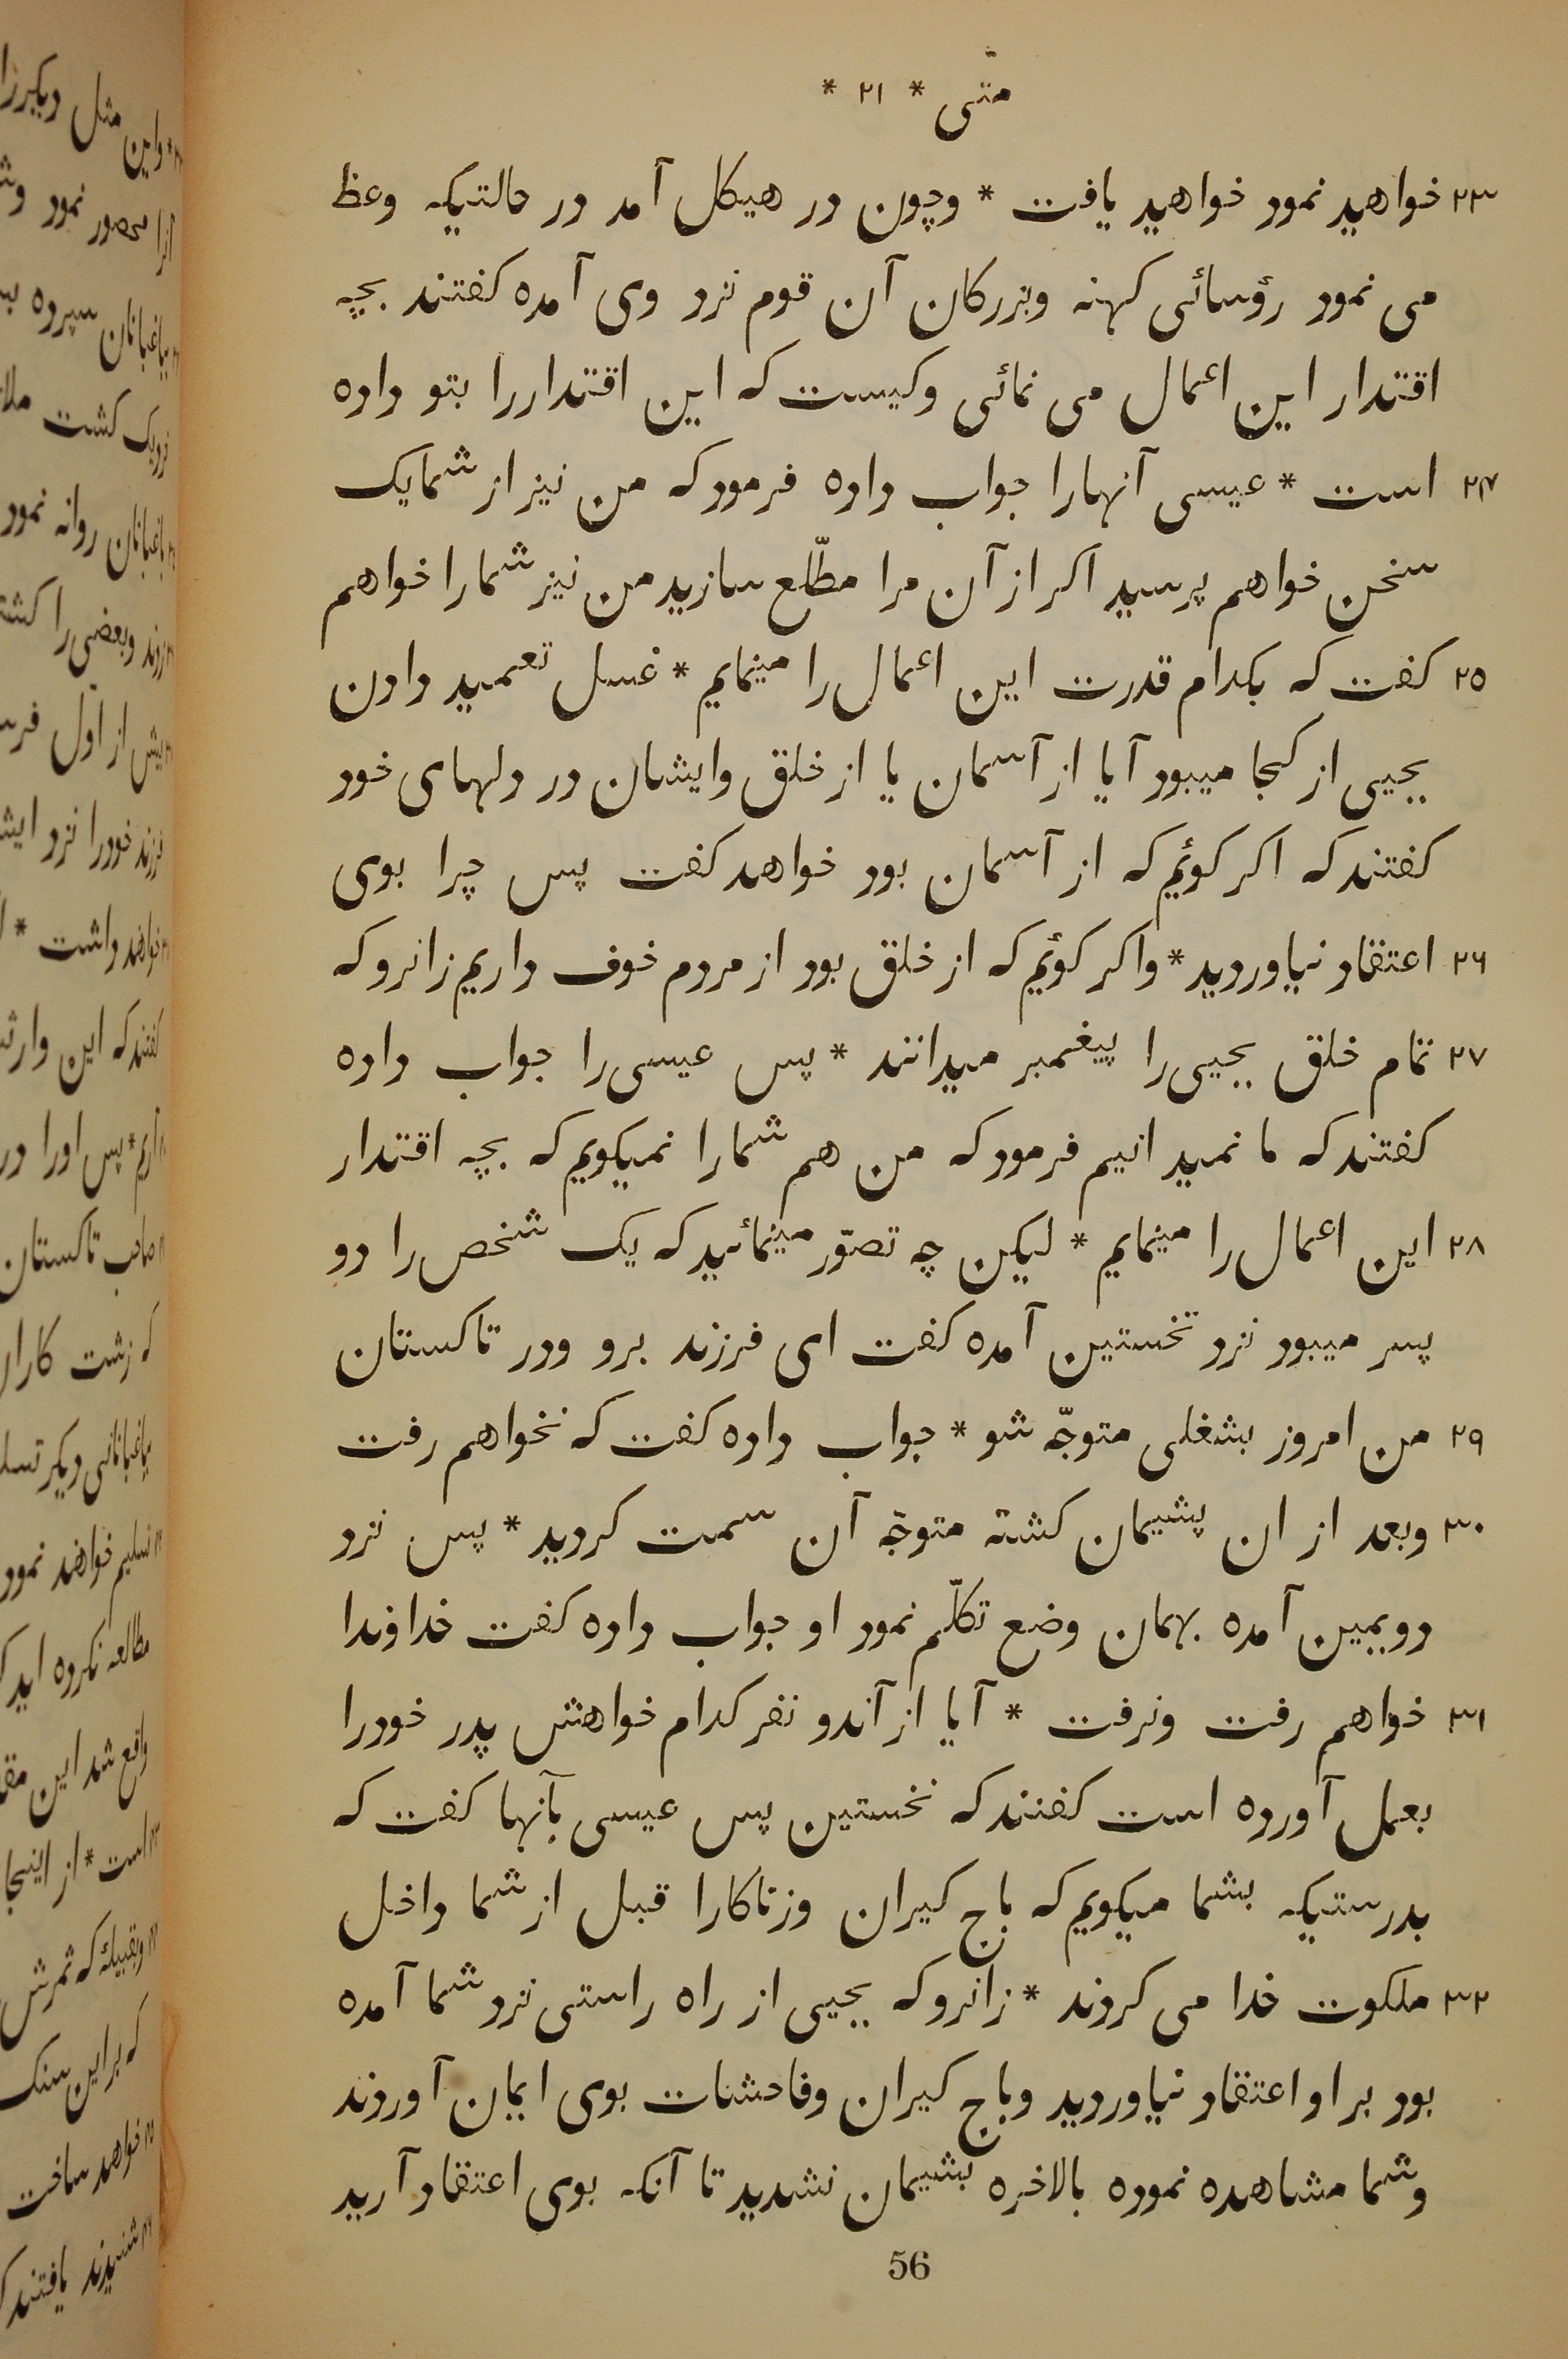 متّی * ۲۱ *
۲۳ خواهید نمود خواهید یافت * وچون در هیکل آمد در حالتیکه وعظ
می نمود رؤسائی کهنه وبزرکان آن قوم نزد وی آمده کفتند بچه
اقتدار این اعمال می نمائی وکیست که این اقتداررا بتو داده
۲۴ است * عیسی آنهارا جواب داده فرمود که من نیز از شما یک
سخن خواهم پرسید اکر از آن مرا مطّلع سازید من نیز شمارا خواهم
۲۵ کفت که بکدام قدرت این اعمال را مینمایم * غسل تعمید دادن
یحیی از کجا میبود آیا از آسمان یا از خلق وایشان در دلهای خود
کفتند که اکر کوئیم که از آسمان بود خواهد کفت پس چرا بوی
۲۶ اعتقاد نیاوردید * واکر کوئیم که از خلق بود از مردم خوف داریم زانرو که
۲۷ تمام خلق یحیی را پیغمبر میدانند * پس عیسی را جواب داده
کفتند که ما نمیدانیم فرمود که من هم شمارا نمیکویم که بچه اقتدار
۲۸ این اعمال را مینمایم * لیکن چه تصوّر مینمائید که یک شخص را دو
پسر میبود نزد نخستین آمده کفت ای فرزند برو ودر تاکستان
۲۹ من امروز بشغلی متوجّه شو * جواب داده کفت که نخواهم رفت
۳۰ وبعد از ان پشیمان کشته متوجّه آن سمت کردید * پس نزد
دویمین آمده بهمان وضع تکلّم نمود او جواب داده کفت خداوندا
۳۱ خواهم رفت ونرفت * آیا از آندو نفر کدام خواهش پدر خودرا
بعمل آورده است کفتند که نخستین پس عیسی بآنها کفت که
بدرستیکه بشما میکویم که باج کیران وزناکارا قبل از شما داخل
۳۲ ملکوت خدا می کردند * زانرو که یحیی از راه راستی نزد شما آمده
بود بر او اعتقاد نیاوردید وباج کیران وفاحشات بوی ایمان آوردند
وشما مشاهده نموده بالاخره بشیمان نشدید تا آنکه بوی اعتقاد آرید
56